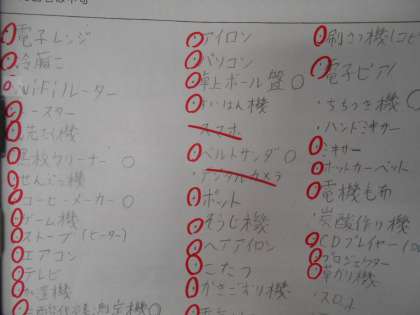 電子レンジ
冷蔵こ
wifiルーター
トースター
洗たく機
クリーナー
せんぷう機
コーヒーメーカー
ゲーム機
ストーブ(ヒーター)
エアコン
テレビ
アイロン
パソコン
卓上ボール盤
すいはん機
スマホ
ベルトサンダ
デジタルカメラ
ポット
そうじ機
ヘアアイロン
こたつ
かきごおり機
印さつ機(コピ
電子ピアノ
もちつき機
ハンドミキサー
ミキサー
ホットカーペット
電機毛布
炭酸作り機
CDプレイヤー
プロジェクター
草かり機
スロット